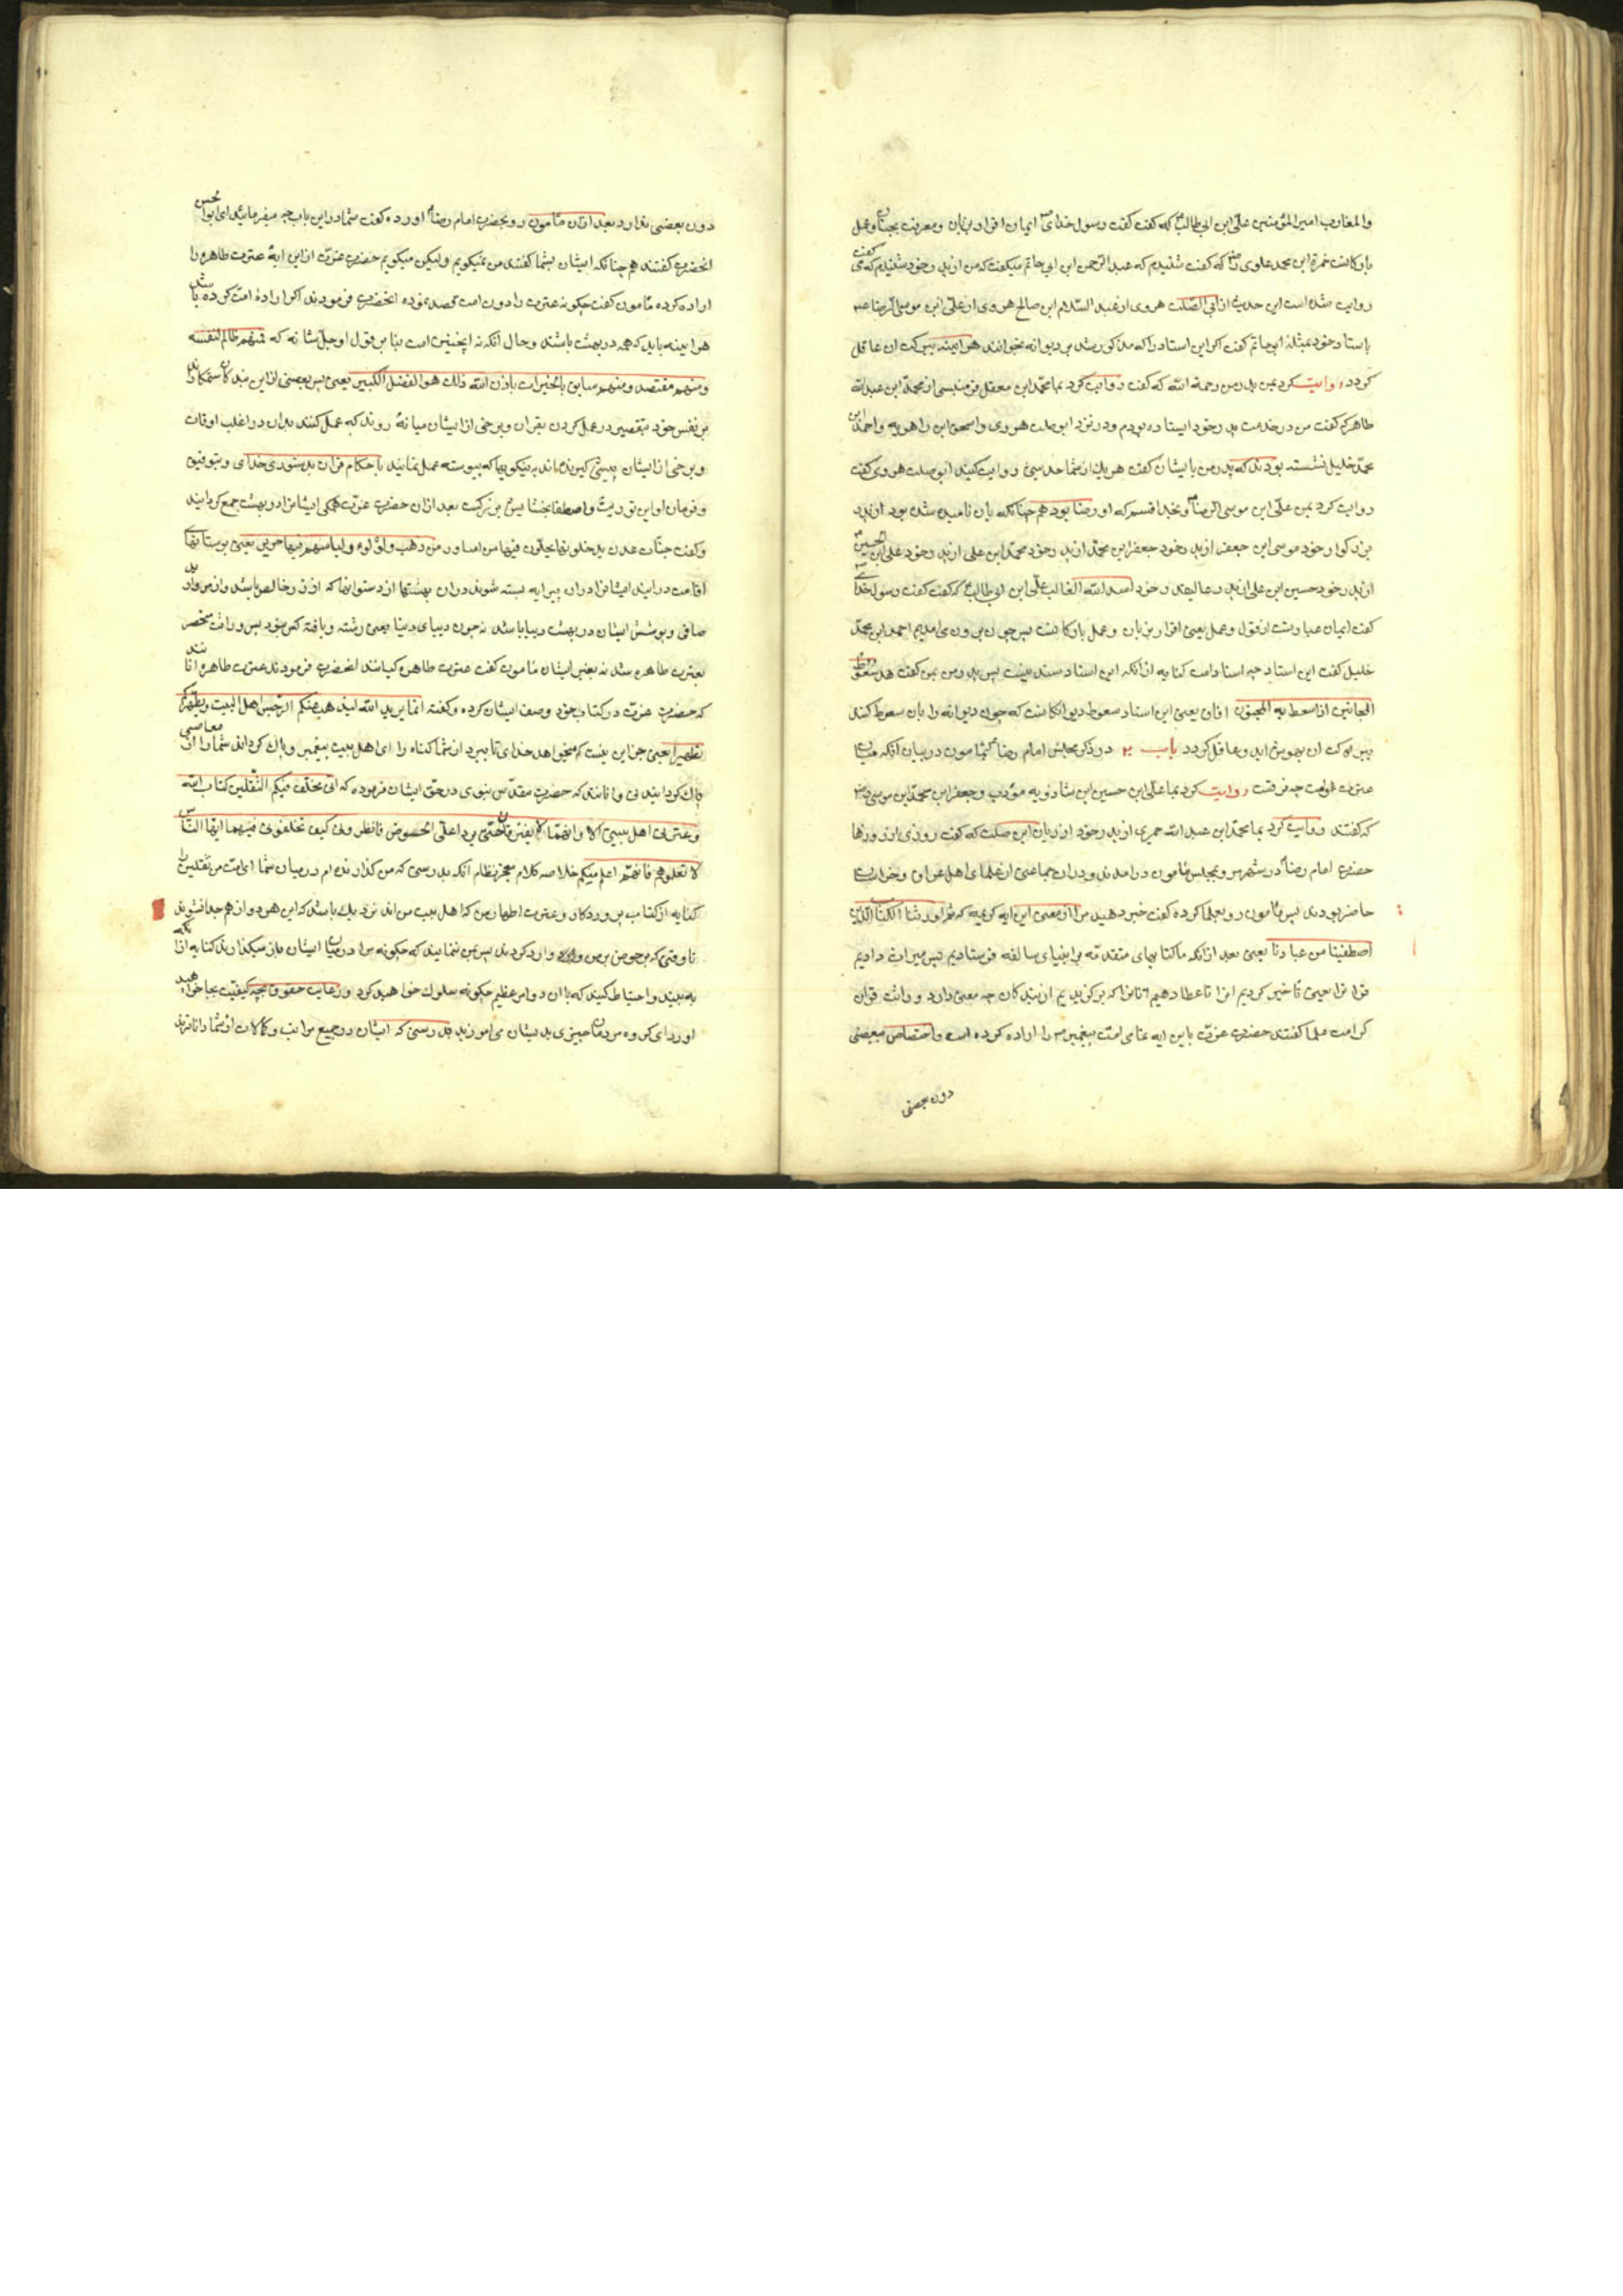 والمغارب امیر المؤمنین علی ابن ابی طالب که کفت کفت رسول خدای ایمان اقرار بزبان ومعرفت بجنان وعمل
بارکانست حمزة ابن محمد علوی که کفت شنیدم که عبد الرحمن ابن ابی حاتم میکفت که من از پدر خود شنیدم که می کفت
روایت شده است این حدیث از ابی الصلت هروی از عبد السلام ابن صالح هروی از علی ابن موسی الرضا عم
باسناد خود بمثله ابو حاتم کفت اکر این اسناد را که مذکور شد بر دیوانه بخوانند هراینه ببرکت ان عاقل
کردد روایت کرد بمن پدر من رحمة الله که کفت روایت کرد بما محمد ابن معقل قرمیسی از محمد ابن عبد الله
طاهر که کفت من در خدمت پدر خود ایستاده بودم ودر نزد ابو صلت هروی واسحق ابن راهویه واحمد ابن
محمد خلیل نشسته بودند که پدر من بایشان کفت هر یك از شما حدیثی روایت کنید ابو صلت هروی کفت
روایت کرد بمن علی ابن موسی الرضا وبخدا قسم که او رضا بود هم چنانکه بان نامیده شده بود از پدر
بزرکوار خود موسی ابن جعفر از پدر خود جعفر ابن محمد از پدر خود محمد ابن علی از پدر خود علی ابن الحسین
از پدر خود حسین ابن علی از پدر عالیقدر خود اسد الله الغالب علی ابن ابی طالب که کفت کفت رسول خدا
کفت ایمان عبارتست از قول وعمل یعنی اقرار بزبان وعمل بارکانست پس چون بیرون می امدیم احمد ابن محمد
خلیل کفت این اسناد چه اسناد است کنایه از انکه این اسناد سند نیست پس پدر من بمن کفت هذا سعوط
المجانین اذا سعط به المجنون افاق یعنی این اسناد سعوط دیوانکانست که چون دیوانه را بان سعوط کنند
ببرکت ان بهوش اید وعاقل کردد باب در ذکر مجلس امام رضا با مامون در بیان انکه میان
عترت وامت چه فرقست روایت کرد بما علی ابن حسین ابن شاذویه مؤدب وجعفر ابن محمد ابن
که کفتند روایت کرد بما محمد ابن عبد الله حمیری از پدر خود از ریان ابن صلت که کفت روزی از روزها
حضرت امام رضا در شهر مرو بمجلس مامون در امدند ودران جماعتی از علمای اهل عراق وخراسان
حاضر بودند پس مامون رو بعلما کرده کفت خبر دهید مرا از معنی این ایه کریمه که ثم اورثنا الکتاب الذین
اصطفینا من عبادنا یعنی بعد از انکه ما کتابهای متقدمه بر انبیای سالفه فرستادیم پس میراث دادیم
قرانرا یعنی تاخیر کردیم انرا تا عطا دهیم انانرا که برکزیدیم از بندکان چه معنی دارد وراثت قران
کرامت علما کفتند حضرت عزت باین ایه تمامی امت پیغمبر را اراده کرده است واختصاص ببعضی
دون بعضی
دون بعضی ندارد بعد ازان مامون رو بحضرت امام رضا اورده کفت شما در این باب چه میفرمایید ای ابو الحسن
انحضرت کفتند هم چنانکه ایشان بشما کفتند من نمیکویم ولیکن میکویم حضرت عزت ازاین ایه عترت طاهره را
اراده کرده مامون کفت چکونه عترت را دون امت قصد نموده انحضرت فرمودند اکر ارادهٔ امت کرده باشد
هراینه باید که همه در بهشت باشند وحال انکه نه اینچنین است بنابر قول او جل شانه که فمنهم ظالم لنفسه
ومنهم مقتصد ومنهم سابق بالخیرات باذن الله ذلك هو الفضل الکبیر یعنی پس بعضی ازاین بندکان ستمکارند
بر نفس خود بتقصیر در عمل کردن بقران وبرخی از ایشان میانه روند که عمل کنند بدان در اغلب اوقات
وبرخی از ایشان پیشی کیرنده اند به نیکویها که پیوسته عمل نمایند باحکام قران بدستوری خدای وبتوفیق
وفرمان او این توریث واصطفا بخشایش بزرکست بعد ازان حضرت عزت همکی ایشانرا در بهشت جمع کردانید
وکفت جنات عدن یدخلونها یحلون فیها من اساور من ذهب ولؤلؤا ولباسهم فیها حریر یعنی بوستانهای
اقامت درایند ایشانرا دران پیرایه بسته شوند دران بهشتها از دستوانها که از زر خالص باشد واز مروارید
صافی وپوشش ایشان در بهشت دیبا باشد نه چون دیبای دنیا یعنی رشته وبافته کس نبود پس وراثت منحصر
بعترت طاهره شد نه بغیر ایشان مامون کفت عترت طاهره کیانند انحضرت فرمودند عترت طاهره انانند
که حضرت عزت در کتاب خود وصف ایشان کرده وکفته انما یرید الله لیذهب عنکم الرجس اهل البیت ویطهرکم
تطهیرا یعنی جز این نیست که میخواهد خدای تا ببرد از شما کناه را ای اهل بیت پیغمبر وپاك کرداند شما را از معاصی
پاك کردانیدنی وانانند که حضرت مقدس نبوی در حق ایشان فرموده که انی مخلف فیکم الثقلین کتاب الله
وعترتی اهل بیتی الا وانهما لا یفترقان حتی یردا علی الحوض فانظروا کیف تخلفونی فیهما ایها الناس
لا تعلموهم فانهم اعلم منکم خلاصه کلام معجز نظام انکه بدرستی که من کذارنده ام در میان شما ای امت من ثقلین را
کنایه از کتاب پروردکار وعترت اطهار من که اهل بیت من اند نزدیك باشد که این هر دو از هم جدا نشوند
تا وقتی که بر حوض بر من وارد کردند پس بمن نمایند که چکونه مرا در میان ایشان باز میکذارید کنایه از انکه
به بینید واحتیاط کنید که باان دو امر عظیم چکونه سلوك خواهید کرد ورعایت حقوق بچه کیفیت بجا خواهید
اورد ای کروه مردمان چیزی بدیشان می اموزید بدرستی که ایشان در جمیع مراتب وکمالات از شما داناترند